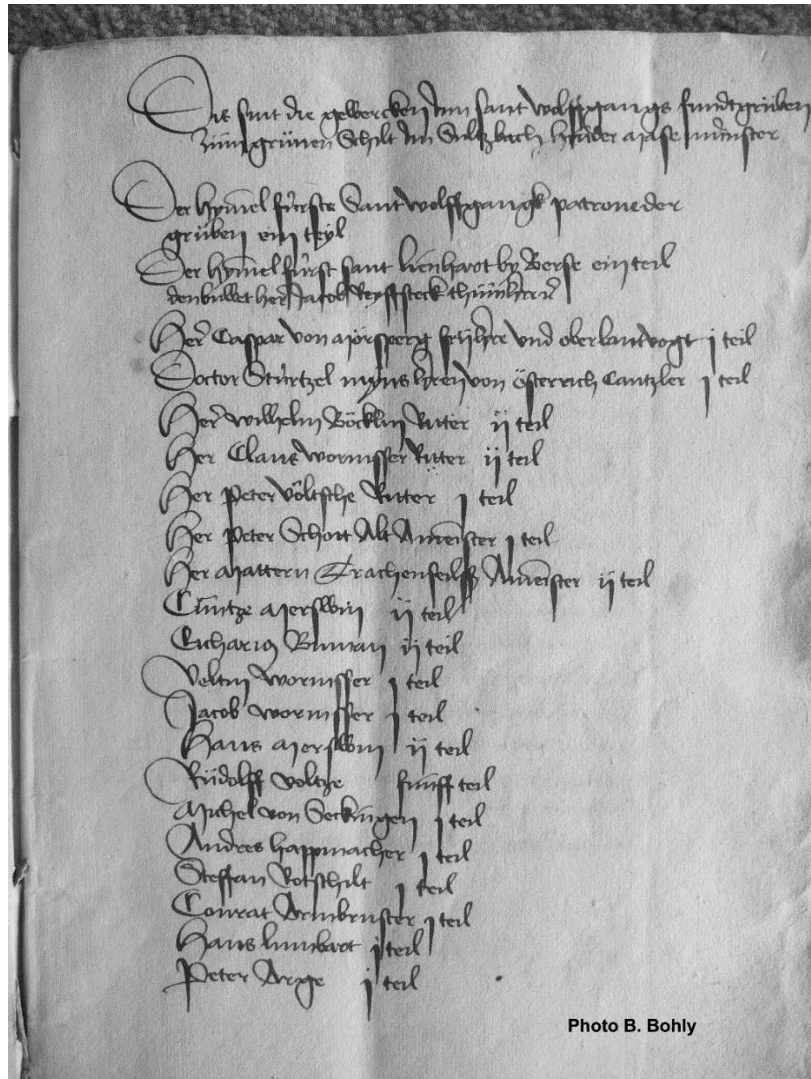 Dis sint die gewercken Inn sant wolffgangs fundtgrüben
zům grünen Schilt Im Sultzbach hinder Masemünster
Der hymel fürste Sant wolffgangk patrone der
grüben ein teyl
Der hymel fürst sant lienhart by Berse ein teil
den buwet her Jacob Reyffsteck
Her Caspar von Mörsperg fryhre und oberlantvogt j teil
Doctor Stürtzel myns hren von österrich Cantzler j teil
Her wilhelm Böcklin Ritter ij teil
Her Claus wormsser Ritter ij teil
Her Peter völtsche Ritter j teil
Her Peter Schott Alt Ameister j teil
Her Mattern Trachenfeilss Ameister ij teil
Cůntze Merswin ij teil
Eucharius ij teil
Veltin wormsser j teil
Jacob wormsser j teil
Hans Merswin ij teil
Růdolff voltze fünff teil
Michel von Seckingen j teil
Andres happmacher j teil
Steffan Rotschilt j teil
Conrat Armbruster j teil
Hans j teil
Peter Arge j teil
Photo B. Bohly